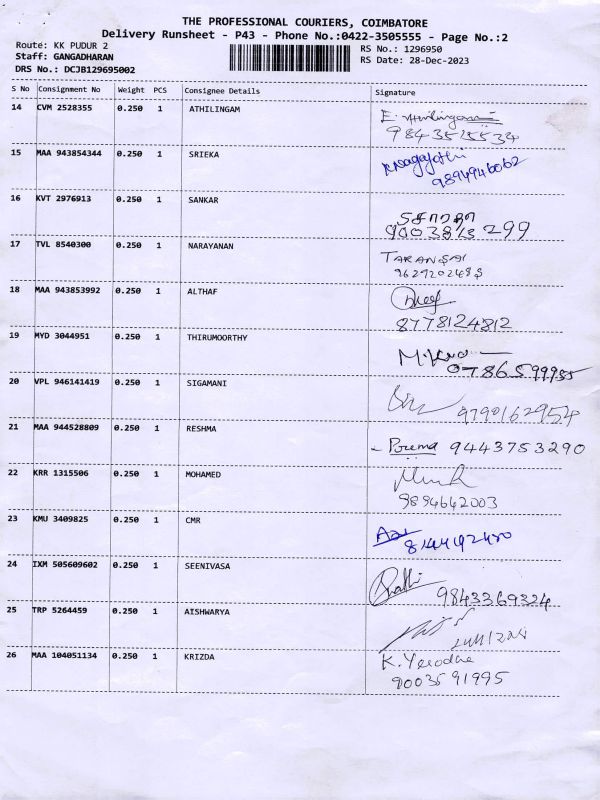 THE PROFESSIONAL COURIERS, COIMBATORE
Delivery Runsheet - P43 - Phone No.:0422-3505555 - Page No.:2
Route: KK PUDUR 2 RS No.: 1296950
Staff: GANGADHARAN RS Date: 28-Dec-2023
DRS No.: DCJB129695002
S No Consignment No Weight PCS Consignee Details Signature
14 CVM 2528355 0.250 1 ATHILINGAM
15 MAA 943854344 0.250 1 SRIEKA
9894946062
16 KVT 2976913 0.250 1 SANKAR
299
17 TVL 8540300 0.250 1 NARAYANAN
TARANSAI
18 MAA 943853992 0.250 1 ALTHAF
8778124812
19 MYD 3044951 0.250 1 THIRUMOORTHY
20 VPL 946141419 0.250 1 SIGAMANI
9790162954
21 MAA 944528809 0.250 1 RESHMA
9443753290
22 KRR 1315506 0.250 1 MOHAMED
9894642003
23 KMU 3409825 0.250 1 CMR
24 IXM 505609602 0.250 1 SEENIVASA
9843369324
25 TRP 5264459 0.250 1 AISHWARYA
26 MAA 104051134 0.250 1 KRIZDA
9003591995